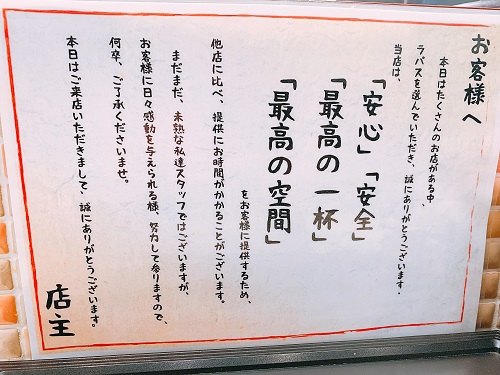 お客様へ
本日はたくさんのお店がある中、
ラパスを選んでいただき、誠にありがとうございます。
当店は、
「安心」「安全」
「最高の一杯」
「最高の空間」
をお客様に提供するため、
他店に比べ、提供にお時間がかかることがございます。
まだまだ、未熟な私達スタッフではございますが、
お客様に日々感動を与えられる様、努力して参りますので、
何卒、ご了承くださいませ。
本日はご来店いただきまして、誠にありがとうございます。
店主